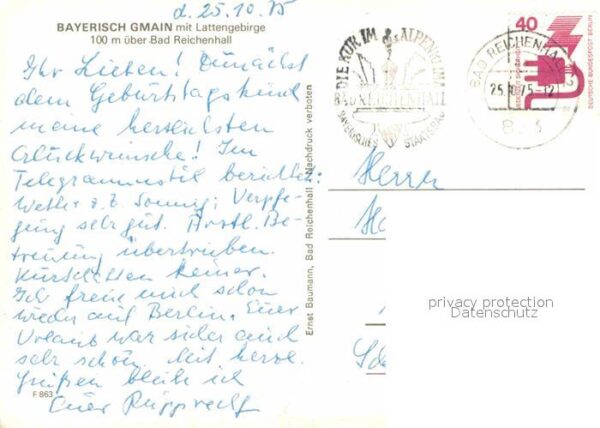 d. 25.10.75
BAYERISCH GMAIN mit Lattengebirge
100 m über Bad Reichenhall
Ihr Lieben! Zunächst
dem Geburtstagskind
meine herzlichsten
Glückwünsche! Im
Telegrammstil berichte:
Wetter z.Z. Sonnig; Verpfle-
gung sehr gut. Ärztl. Be-
treuung übertrieben.
Kurschatten keiner.
Ich freue mich schon
wieder auf Berlin. Euer
Urlaub war sicher auch
sehr schön. Mit herzl.
Grüßen bleibe ich
Euer Rupprecht
F 863
Ernst Baumann, Bad Reichenhall Nachdruck verboten
DIE KUR IM ALPENKLIMA
BAD REICHENHALL
BAYERISCHES STAATSBAD
BAD REICHENHALL
25.10.75-12
40
DEUTSCHE BUNDESPOST BERLIN
Herrn
privacy protection
Datenschutz